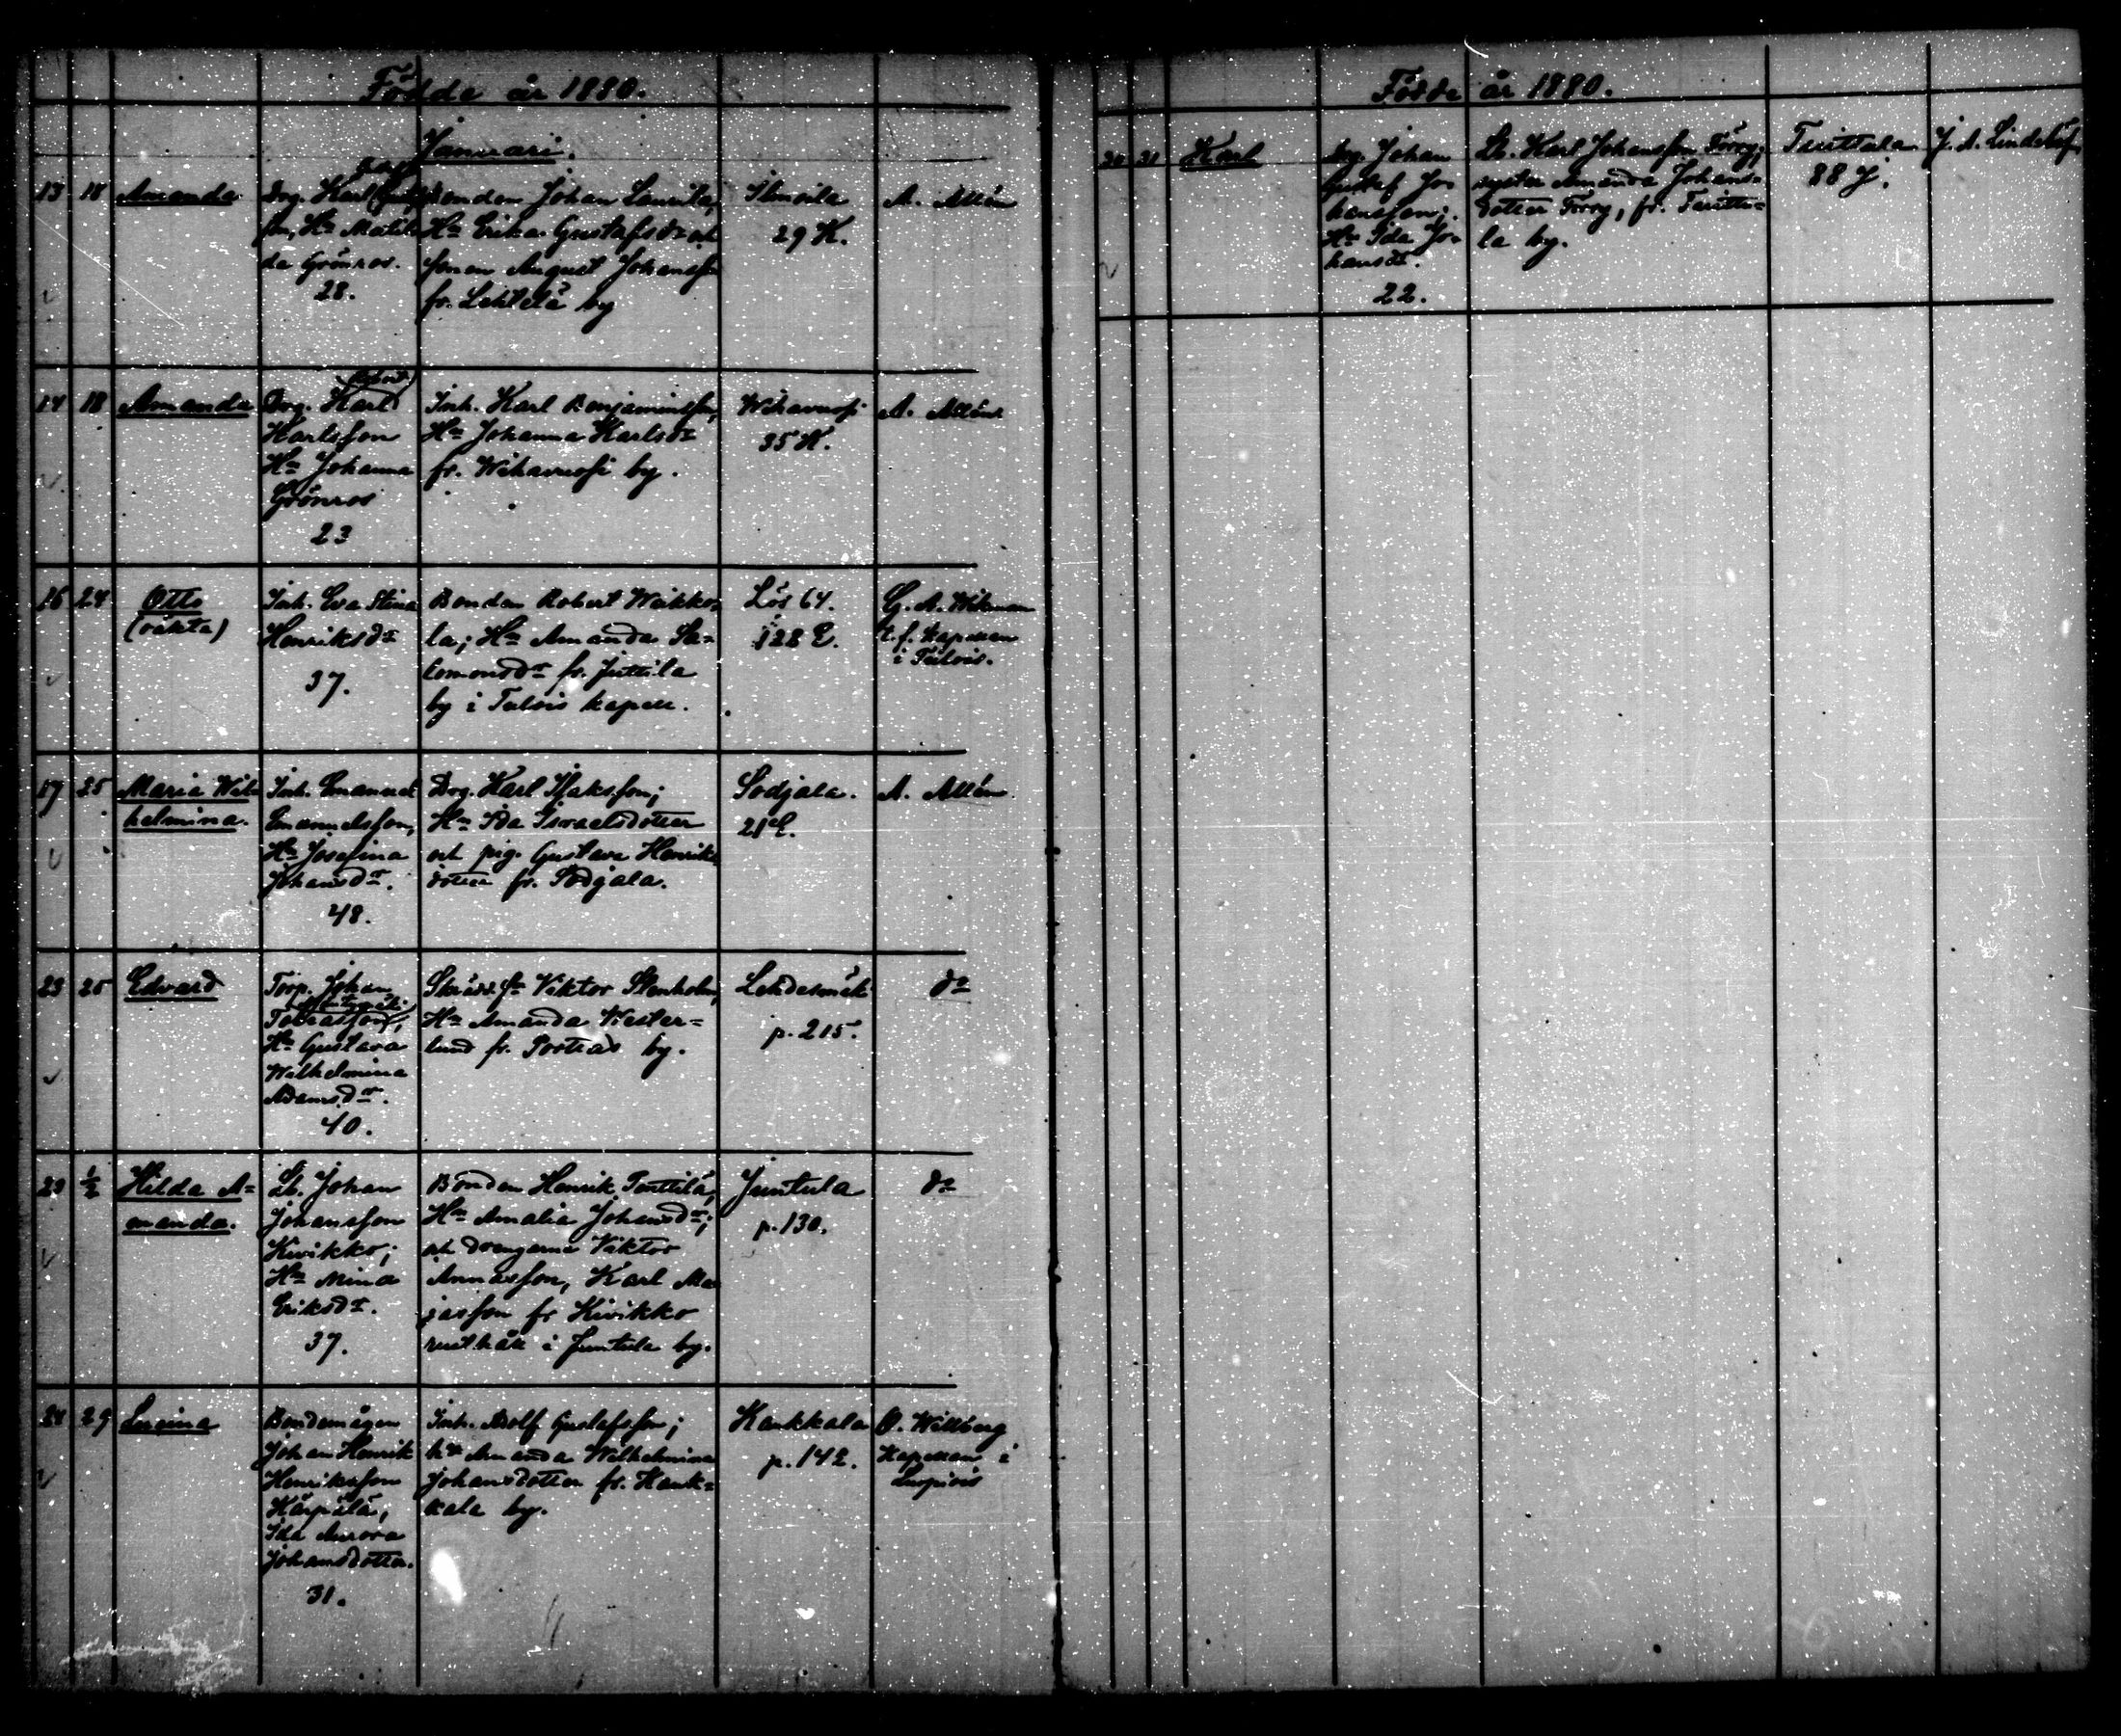 Födde år 1880.
Januari.
13 18 Amanda
Drg. Karl
son, Hu Matil
da Grönros.
28.
Bonden Johan Laurila,
Hu Erika Gustafsdr och
sonen August Johansson
fr. Lehtelä by
29 K.
A. Allén
14 18 Amanda
Drg. Karl
Karlsson
Hu Johanna
Grönros
23
Inh. Karl Benjaminsson,
Hu Johanna Karlsdr
fr. Wihavuosi by.
Wihavuosi
35 K.
A. Allén
16 24 Otto
(oäkta)
Inh. Eva Stina
Henriksdr
37.
Bonden Robert Weikko-
la; Hu Amanda Sa-
lomonsdr fr. Juttila
by i Tulois kapell.
Lös 64.
128 E.
G. A. Wikman
t. f. kapellan
i Tulois.
17 25 Maria Wil-
helmina.
Inh. Emanuel
Emanuelsson,
Hu Josefina
Johansdr.
48.
Drg. Karl Isaksson;
Hu Ida Israelsdotter
och pig. Gustava Henriks
dotter fr. Sodjala.
Sodjala.
21 E.
A. Allén
23 25 Edvard
Torp. Johan
Tobiasson,
Hu Gustava
Wilhelmina
Adamsdr.
40.
Skrädd. Viktor Stenholm,
Hu Amanda Wester-
lund fr. Porras by.
p. 215.
do
29 1/2 Hilda A-
manda.
Lb. Johan
Johansson
Kivikko;
Hu Mina
Eriksdr.
37.
Bonden Henrik Penttilä,
Hu Amalia Johansdr;
och drengarna Viktor
Annasson, Karl Ma
jasson fr Kivikko
rusthåll i Juntula by.
Juntula
p. 130.
do
24 29 Lucina
Bondemågen
Johan Henrik
Henriksson
Kärpälä,
Ida Aurora
Johansdotter.
31.
Inh. Adolf Gustafsson;
hu Amanda Wilhelmina
Johansdotter fr. Kauk-
kala by.
Kaukkala
p. 142.
O. Willberg
Kapellan i
Luopiois
Födde år 1880.
30 31 Karl
Drg. Johan
Gustaf Jo-
hansson;
Hu Ida Jo-
hansdr.
22.
Lb. Karl Johansson Törry;
syster Amanda Johans-
dotter Törry, fr. Turitta-
la by.
Turittala
88 J.